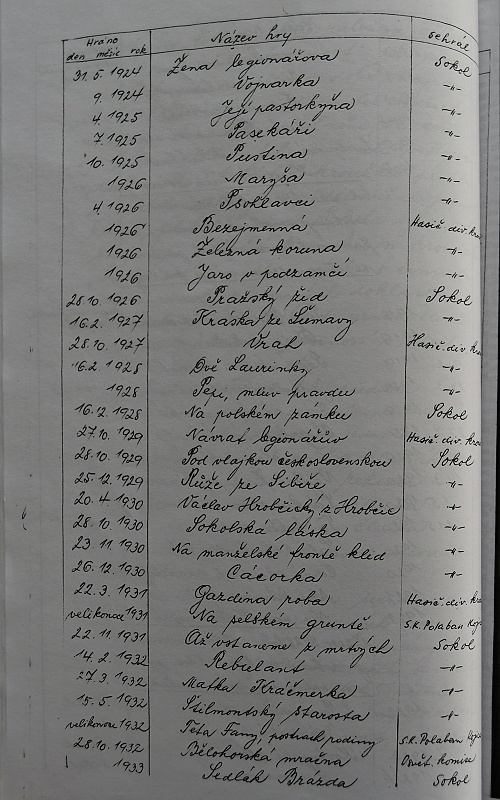 Hráno Název hry Sehrál
den měsíc rok
31. 5. 1924 Žena legionářova Sokol
9. 1924 Vojnarka -"-
4. 1925 Její pastorkyňa -"-
7. 1925 Pasekáři -"-
10. 1925 Pustina -"-
1926 Maryša -"-
4. 1926 Psohlavci -"-
1926 Bezejmenná Hasič. div.
1926 Železná koruna -"-
1926 Jaro v podzamčí -"-
28. 10. 1926 Pražský žid Sokol
16. 2. 1927 Kráska ze Šumavy -"-
28. 10. 1927 Vrah Hasič. div.
16. 2. 1928 Dvě Laurinky -"-
1928 Pepi, mluv pravdu -"-
16. 2. 1928 Na polském zámku Sokol
27. 10. 1929 Návrat legionářův Hasič. div.
28. 10. 1929 Pod vlajkou československou Sokol
25. 12. 1929 Růže ze Sibiře -"-
20. 4. 1930 Václav Hrobčický z Hrobčic -"-
28. 10. 1930 Sokolská láska -"-
23. 11. 1930 Na manželské frontě klid -"-
26. 12. 1930 Cácorka -"-
22. 3. 1931 Gazdina roba Hasič. div.
velikonoce 1931 Na peлském gruntě S.K. Polaban
22. 11. 1931 Až vstaneme z mrtvých Sokol
14. 2. 1932 Rebulant -"-
27. 3. 1932 Matka Kráčmerka -"-
15. 5. 1932 Stilmontský starosta -"-
velikonoce 1932 Teta Fany, postrach rodiny S.K. Polaban
28. 10. 1932 Bělohorská mračna Osvět. komise
1933 Sedlák Brázda Sokol